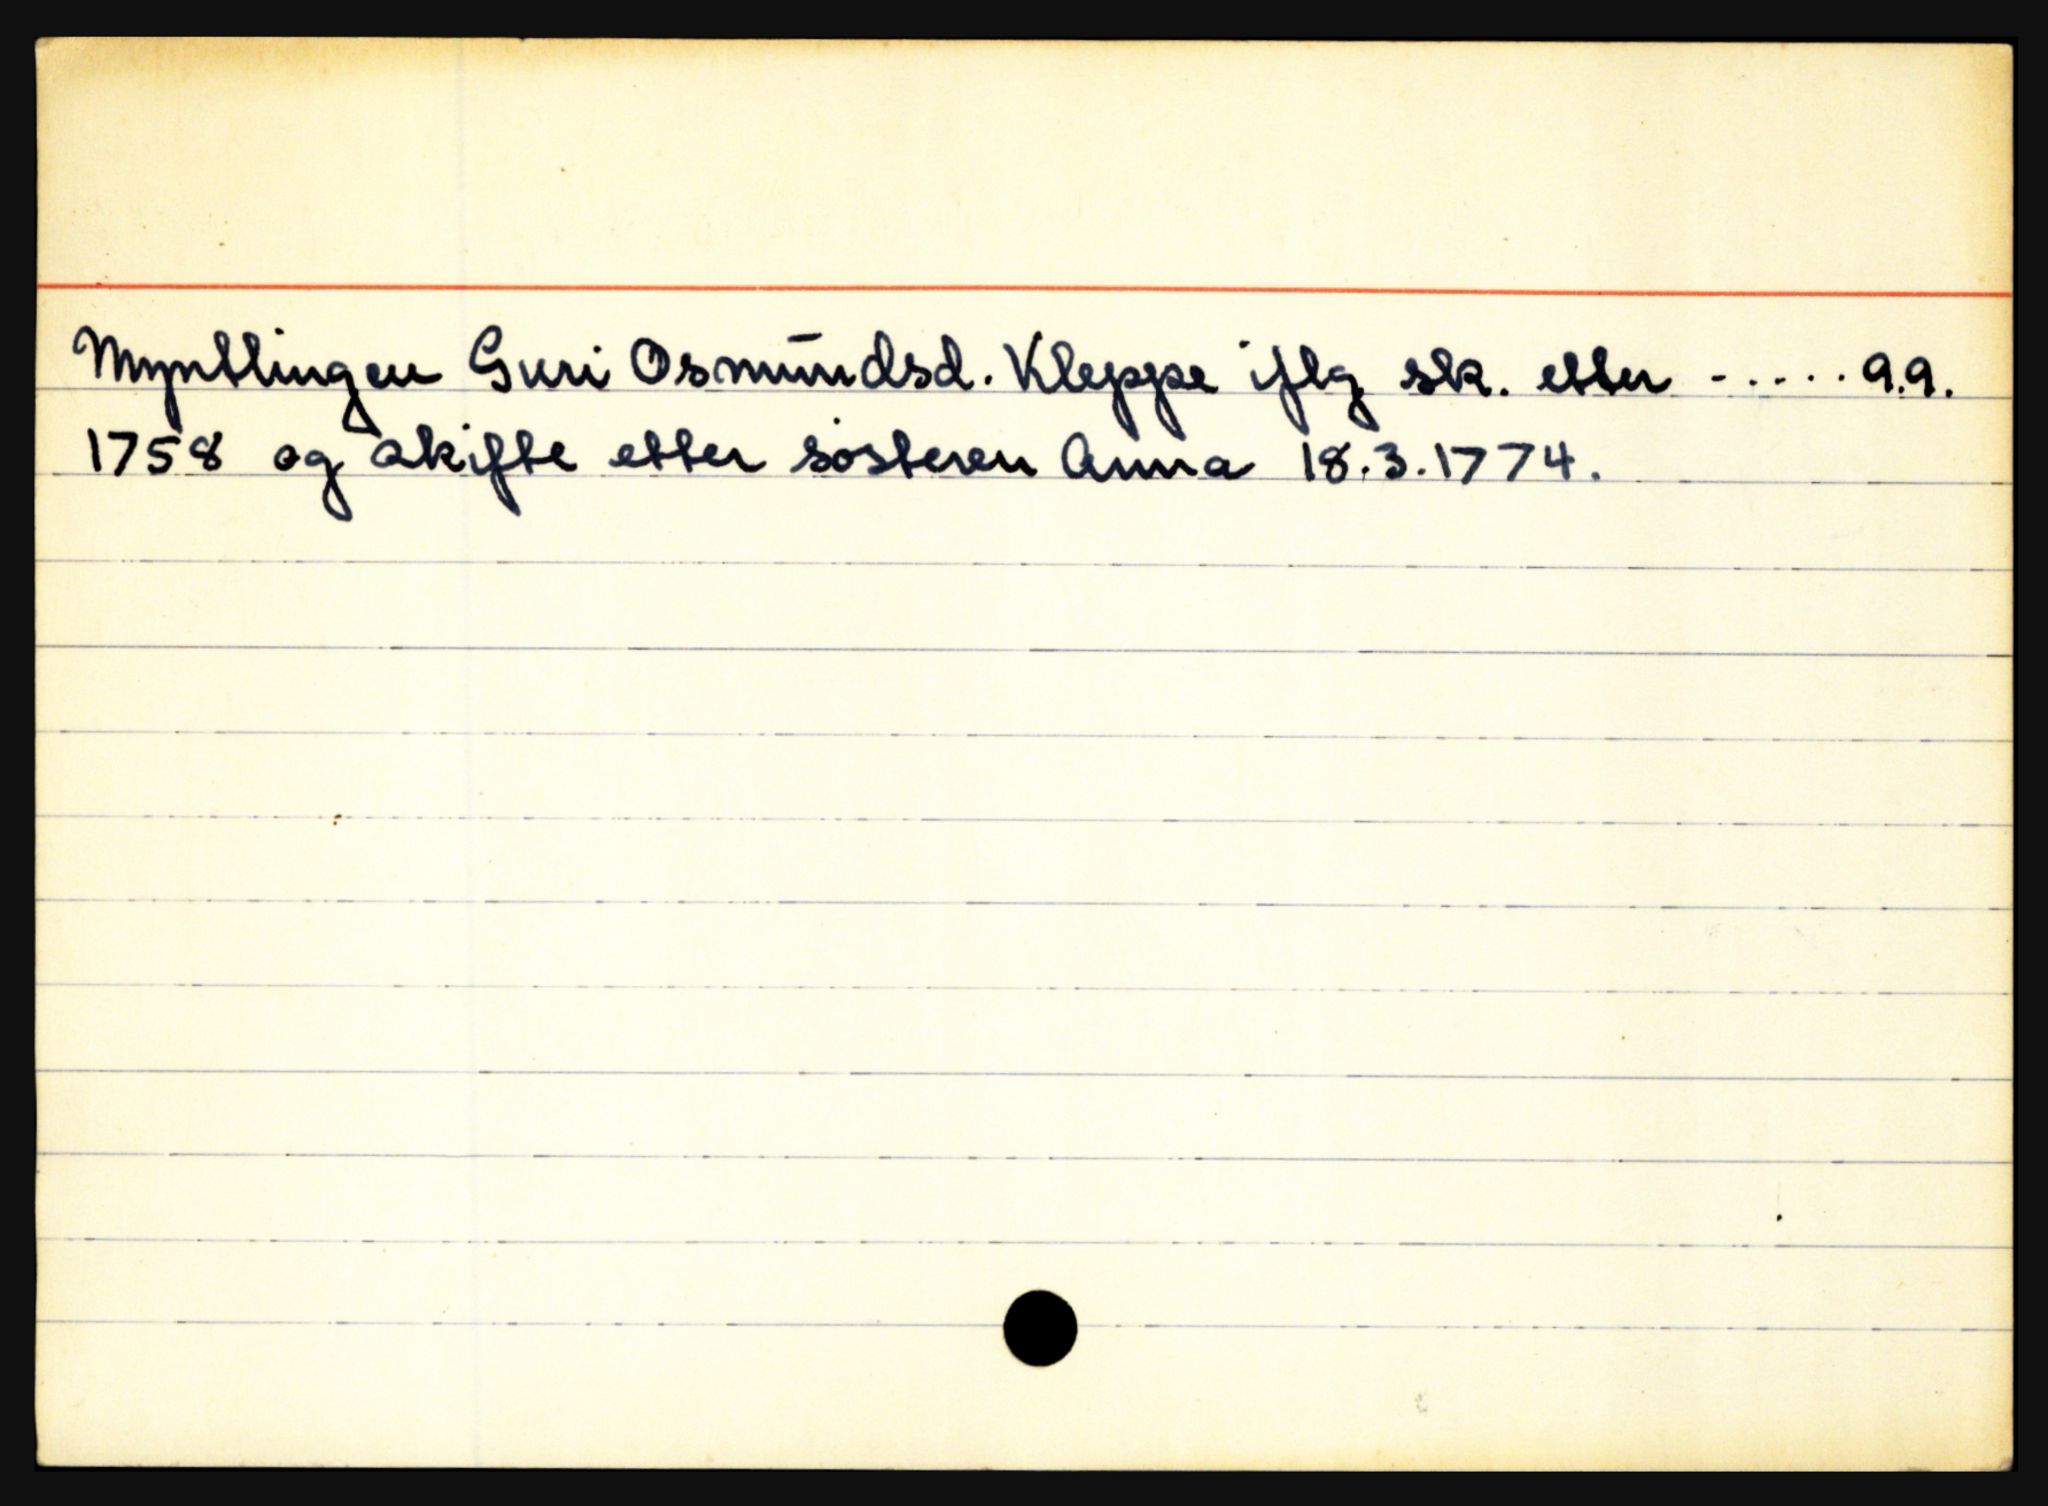 Myntlingen Guri Osmundsd. Kleppe iflg sk. etter ...... 9.9.
1758 og skifte etter søsteren Anna 18.3.1774.